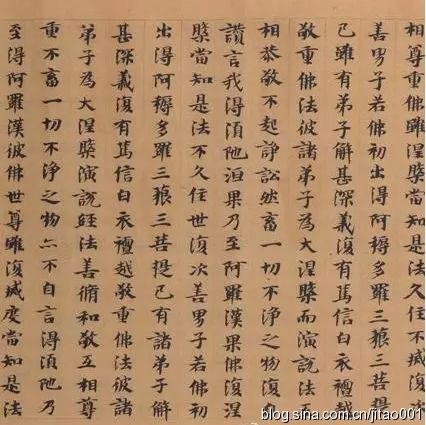 相尊重佛雖涅槃當知是法久住不滅復次
善男子若佛初出得阿耨多羅三藐三菩提
已雖有弟子解甚深義復有篤信白衣檀越
敬重佛法彼諸弟子為大涅槃而演說法互
相恭敬不起諍訟然畜一切不淨之物復自
讚言我得須陁洹果乃至阿羅漢果佛復涅
槃當知是法不久住世復次善男子若佛初
出得阿耨多羅三藐三菩提已有諸弟子解
甚深義復有篤信白衣檀越敬重佛法彼諸
弟子為大涅槃演說經法善脩和敬互相尊
重不畜一切不淨之物亦不自言得須陁乃
至得阿羅漢彼佛世尊雖復滅度當知是法
blog.sina.com.cn/jitao001